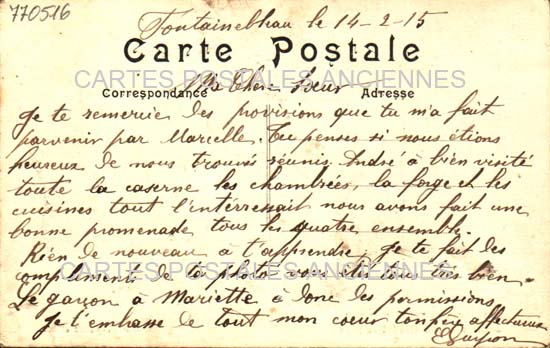 770516
Fontainebleau le 14-2-15
Carte Postale
CARTES POSTALES ANCIENNES
Ma Chere Soeur
Correspondance
Adresse
Je te remercie des provisions que tu m'a fait
parvenir par Marcelle. Tu penses si nous étions
heureux de nous trouvés réunis. André à bien visité
toute la caserne les chambrées, la forge et les
cuisines tout l'interressait nous avons fait une
bonne promenade tous les quatre ensemble.
Rien de nouveau à t'apprendre. Je te fait des
compliments de ta photo vous êtes tous très bien.
CARTES POSTALES ANCIENNES
Le garçon à Mariette à donc des permissions,
Je t'embrasse de tout mon coeur ton frère affectueux